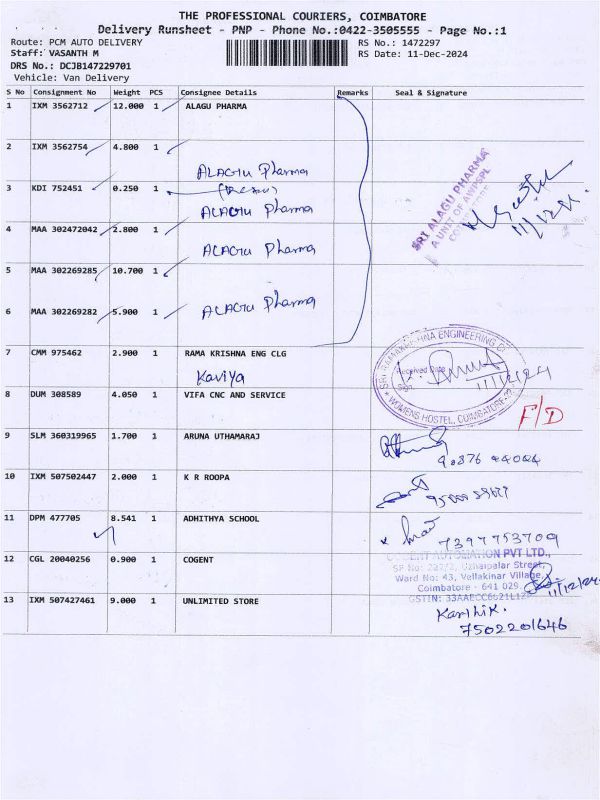 THE PROFESSIONAL COURIERS, COIMBATORE
Delivery Runsheet - PNP - Phone No.:0422-3505555 - Page No.:1
Route: PCM AUTO DELIVERY
Staff: VASANTH M
DRS No.: DCJB147229701
Vehicle: Van Delivery
RS No.: 1472297
RS Date: 11-Dec-2024
S No Consignment No Weight PCS Consignee Details Remarks Seal & Signature
1 IXM 3562712 12.000 1 ALAGU PHARMA
2 IXM 3562754 4.800 1
ALAGU Pharma
3 KDI 752451 0.250 1
ALAGU Pharma
4 MAA 302472042 2.800 1
ALAGU Pharma
5 MAA 302269285 10.700 1
6 MAA 302269282 5.900 1 ALAGU Pharma
SRI ALAGU PHARMA
A UNIT OF AWPSPL
11/12/24
7 CMM 975462 2.900 1 RAMA KRISHNA ENG CLG
Kaviya
SRI RAMAKRISHNA ENGINEERING
Received Date
Sign
11/12/24
WOMENS HOSTEL, COIMBATORE-22
8 DUM 308589 4.050 1 VIFA CNC AND SERVICE
F/D
9 SLM 360319965 1.700 1 ARUNA UTHAMARAJ
10 IXM 507502447 2.000 1 K R ROOPA
11 DPM 477705 8.541 1 ADHITHYA SCHOOL
7397753709
12 CGL 20040256 0.900 1 COGENT
COGENT AUTOMATION PVT LTD.,
SF No: 227/2, Uzhaipalar Street,
Ward No: 43, Vellakinar Village,
Coimbatore - 641 029.
11/12/24
13 IXM 507427461 9.000 1 UNLIMITED STORE
Karthik.
7502201646